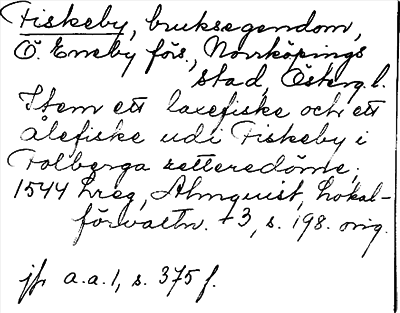 Fiskeby, bruksegendom,
Ö. Eneby förs., Norrköpings
stad, Österg. l.
Item ett laxefiske och ett
ålefiske udi Fiskeby i
Folberga retteredöme,
1544 hreg, Almquist, Lokal-
förvaltn. +3, s. 198. orig.
jfr a.a. 1, s. 375 f.